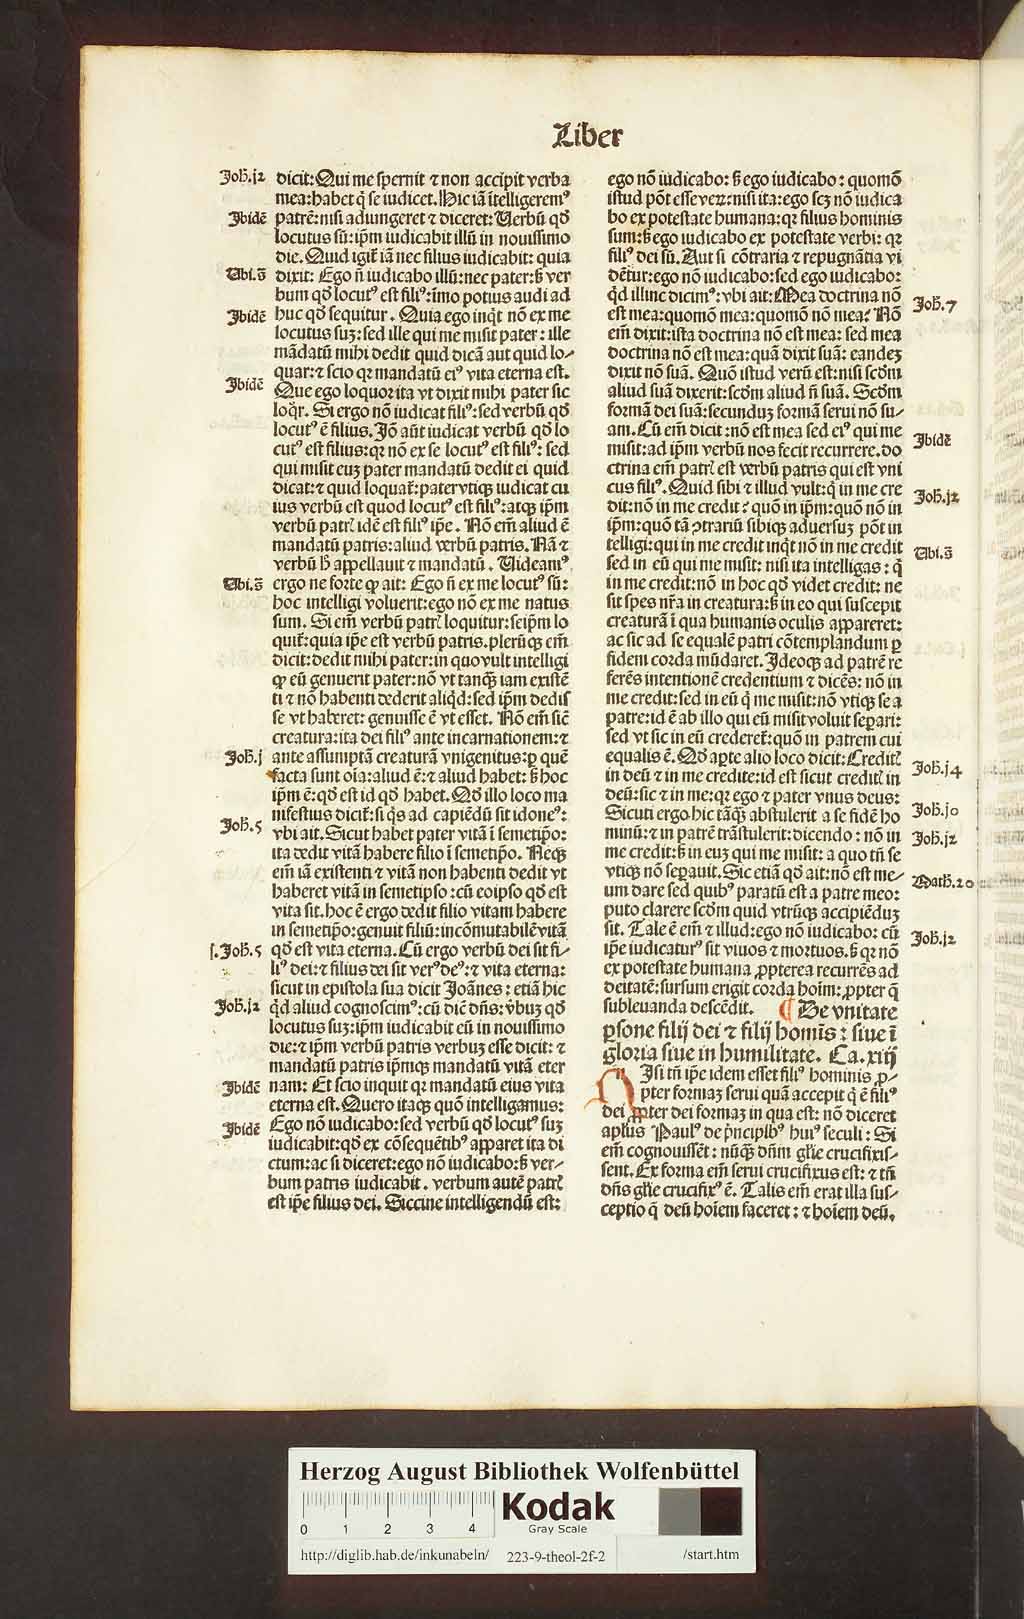 Liber
Joh.j2
dicit: Qui me spernit ⁊ non accipit verba
mea: habet q̇ se iudicet. Hic iā ītelligeremꝰ
Jbidē
patrē: nisi adiungeret ⁊ diceret: Uerbū qd̄
locutus sū: ip̄m iudicabit illū in nouissimo
die. Quid igit̄ iā nec filius iudicabit: quia
Ubi.s̄
dixit: Ego n̄ iudicabo illū: nec pater: s̄ ver
bum qd̄ locutꝰ est filiꝰ: imo potius audi ad
Jbidē
huc qd̄ sequitur. Quia ego inq̇t nō ex me
locutus suꝫ: sed ille qui me misit pater: ille
mādatū mihi dedit quid dicā aut quid lo⸗
quar: ⁊ scio qꝛ mandatū eiꝰ vita eterna est.
Jbidē
Que ego loquor ita vt dixit mihi pater sic
loq̄r. Si ergo nō iudicat filiꝰ: sed verbū qd̄
locutꝰ ē filius. Jō aūt iudicat verbū qd̄ lo
cutꝰ est filius: qꝛ nō ex se locutꝰ est filiꝰ: sed
qui misit euꝫ pater mandatū dedit ei quid
dicat: ⁊ quid loquat̄: pater vtiqꝫ iudicat cu
ius verbū est quod locutꝰ est filiꝰ: atqꝫ ip̄m
verbū patrꝭ idē est filiꝰ ip̄e. Nō em̄ aliud ē
mandatū patris: aliud verbū patris. Nā ⁊
verbū h̄ appellauit ⁊ mandatū. Uideamꝰ
Ubi.s̄
ergo ne forte ꝙ ait: Ego n̄ ex me locutꝰ sū:
hoc intelligi voluerit: ego nō ex me natus
sum. Si em̄ verbū patrꝭ loquitur: seip̄m lo
quit̄: quia ip̄e est verbū patris. plerūqꝫ em̄
dicit: dedit mihi pater: in quo vult intelligi
ꝙ eū genuerit pater: nō vt tanqꝫ iam existē
ti ⁊ nō habenti dederit aliq̇d: sed ip̄m dedis
se vt haberet: genuisse ē vt esset. Nō em̄ sic
creatura: ita dei filiꝰ ante incarnationem: ⁊
Joh.j
ante assumptā creaturā vnigenitus: ꝑ quē
facta sunt oīa: aliud ē: ⁊ aliud habet: s̄ hoc
ip̄m ē: qd̄ est id qd̄ habet. Qd̄ illo loco ma
nifestius dicit̄: si q̇s ad capiēdū sit idoneꝰ:
Joh.5
vbi ait. Sicut habet pater vitā ī semetip̄o:
ita dedit vitā habere filio ī semetip̄o. Neqꝫ
em̄ iā existenti ⁊ vitā non habenti dedit vt
haberet vitā in semetipso: cū eo ipso qd̄ est
vita sit. hoc ē ergo dedit filio vitam habere
in semetip̄o: genuit filiū: incōmutabilē vitā
j.Joh.5
qd̄ est vita eterna. Cū ergo verbū dei sit fi⸗
liꝰ dei: ⁊ filius dei sit verꝰ deꝰ: ⁊ vita eterna:
sicut in epistola sua dicit Joānes: etiā hic
Joh.j2
q̇d aliud cognoscimꝰ: cū dic̄ dn̄s: v̄buꝫ qd̄
locutus suꝫ: ip̄m iudicabit eū in nouissimo
die: ⁊ ip̄m verbū patris verbuꝫ esse dicit: ⁊
mandatū patris ip̄mqꝫ mandatū vitā eter
Jbidē
nam: Et scio inquit qꝛ mandatū eius vita
eterna est. Quero itaqꝫ quō intelligamus:
Jbidē
Ego nō iudicabo: sed verbū qd̄ locutꝰ suꝫ
iudicabit: qd̄ ex cōsequētibꝰ apparet ita di
ctum: ac si diceret: ego nō iudicabo: s̄ ver⸗
bum patris iudicabit. verbum autē patrꝭ
est ip̄e filius dei. Siccine intelligendū est:
ego nō iudicabo: s̄ ego iudicabo: quomō
istud pōt esse veꝝ: nisi ita: ego scꝫ nō iudica
bo ex potestate humana: qꝛ filius hominis
sum: s̄ ego iudicabo ex potestate verbi: qꝛ
filiꝰ dei sū. Aut si cōtraria ⁊ repugnātia vi
dētur: ego nō iudicabo: sed ego iudicabo:
q̇d illinc dicimꝰ: vbi ait: Mea doctrina nō
Joh.7
est mea: quomō mea: quomō nō mea? Nō
em̄ dixit: ista doctrina nō est mea: sed mea
doctrina nō est mea: quā dixit suā: eandeꝫ
dixit nō suā. Quō istud verū est: nisi scd̄m
aliud suā dixerit: scd̄m aliud n̄ suā. Scd̄m
formā dei suā: secunduꝫ formā serui nō su⸗
am. Cū em̄ dicit: nō est mea sed eiꝰ qui me
Jbidē
misit: ad ip̄m verbū nos fecit recurrere. do
ctrina em̄ patrꝭ est verbū patris qui est vni
cus filiꝰ. Quid sibi ⁊ illud vult: q̇ in me cre
Joh.j2
dit: nō in me credit? quō in ip̄m: quō nō in
ip̄m: quō tā ꝯtrariū sibiqꝫ aduersuꝫ pōt in
telligi: qui in me credit inq̇t nō in me credit
Ubi.s̄
sed in eū qui me misit: nisi ita intelligas: q̇
in me credit: nō in hoc qd̄ videt credit: ne
sit spes nr̄a in creatura: s̄ in eo qui suscepit
creaturā ī qua humanis oculis appareret:
ac sic ad se equalē patri cōtemplandum ꝑ
fidem corda mūdaret. Jdeoqꝫ ad patrē re
ferēs intentionē credentium ⁊ dicēs: nō in
me credit: sed in eū q̇ me misit: nō vtiqꝫ se a
patre: id ē ab illo qui eū misit voluit seꝑari:
sed vt sic in eū crederet̄: quō in patrem cui
equalis ē. Qd̄ aꝑte alio loco dicit: Creditꝭ
Joh.j4
in deū ⁊ in me credite: id est sicut creditꝭ in
deū: sic ⁊ in me: qꝛ ego ⁊ pater vnus deus:
Joh.jo
Sicuti ergo hic tāq̄ꝫ abstulerit a se fidē ho
minū: ⁊ in patrē trāstulerit: dicendo: nō in
Joh.j2
me credit: s̄ in euꝫ qui me misit: a quo tn̄ se
vtiqꝫ nō seꝑauit. Sic etiā qd̄ ait: nō est me⸗
Math.20
um dare sed quibꝰ paratū est a patre meo:
puto clarere scd̄m quid vtrūqꝫ accipiēduꝫ
sit. Tale ē em̄ ⁊ illud: ego nō iudicabo: cū
Joh.j2
ip̄e iudicaturꝰ sit viuos ⁊ mortuos. s̄ qꝛ nō
ex potestate humana ꝓpterea recurrēs ad
deitatē: sursum erigit corda hoīm: ꝓpter q̄
subleuanda descēdit. ¶ De vnitate
ꝑsone filij dei ⁊ filij homīs: siue ī
gloria siue in humilitate. Ca.xiij
NJsi tn̄ ip̄e idem esset filiꝰ hominis ꝓ⸗
pter formaꝫ serui quā accepit q̇ ē filiꝰ
dei ꝓpter dei formaꝫ in qua est: nō diceret
apl̄us Paulꝰ de pn̄cipibꝰ huiꝰ seculi: Si
em̄ cognouissēt: nūqꝫ dn̄m glīe crucifixis⸗
sent. Ex forma em̄ serui crucifixus est: ⁊ tn̄
dn̄s glīe crucifixꝰ ē. Talis em̄ erat illa sus⸗
ceptio q̄ deū hoīem faceret: ⁊ hoīem deū.
Herzog August Bibliothek Wolfenbüttel
0 1 2 3 4
Kodak
Gray Scale
http://diglib.hab.de/inkunabeln/ 223-9-theol-2f-2 /start.htm